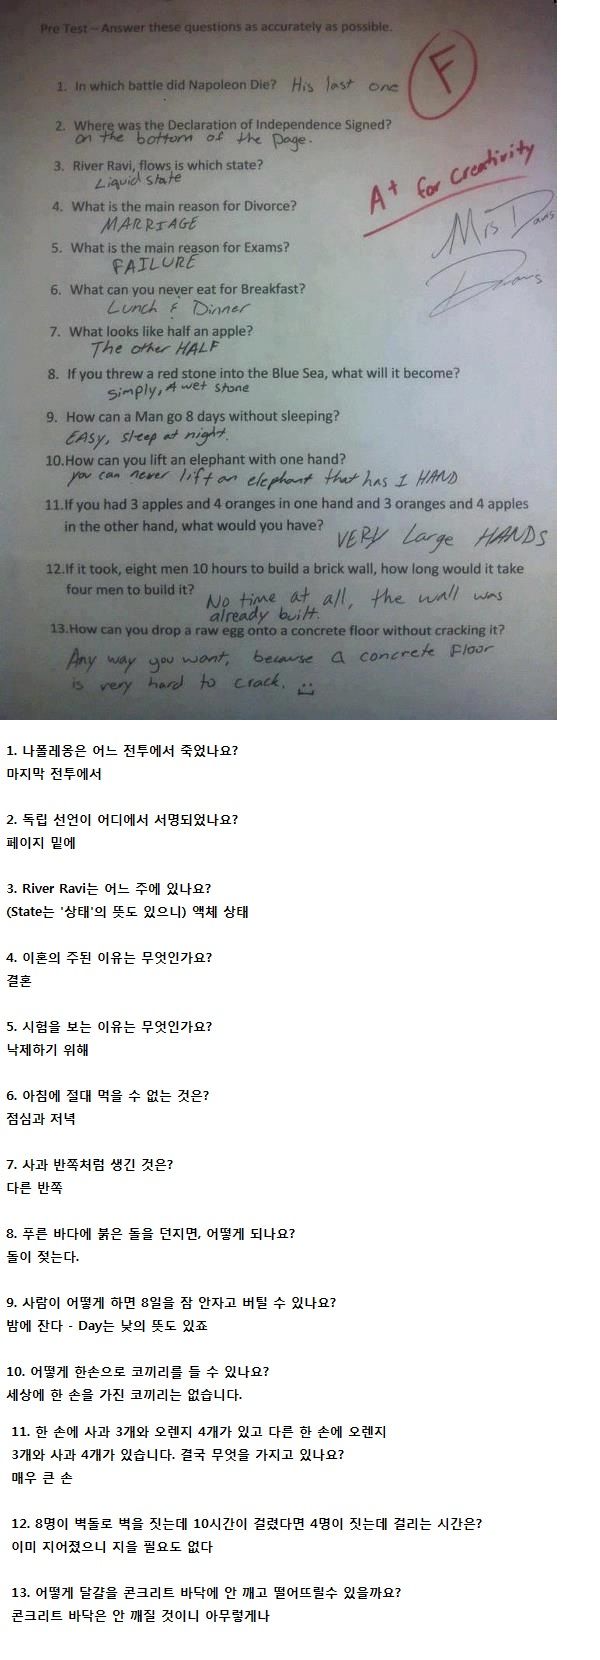 Pre Test – Answer these questions as accurately as possible.
F
1. In which battle did Napoleon Die? His last one
2. Where was the Declaration of Independence Signed?
on the bottom of the page.
3. River Ravi, flows is which state?
Liquid state
A+ for Creativity
4. What is the main reason for Divorce?
MARRIAGE
Mrs Davis
5. What is the main reason for Exams?
FAILURE
6. What can you never eat for Breakfast?
Lunch & Dinner
7. What looks like half an apple?
The other HALF
8. If you threw a red stone into the Blue Sea, what will it become?
simply, A wet stone
9. How can a Man go 8 days without sleeping?
EASY, sleep at night.
10.How can you lift an elephant with one hand?
you can never lift an elephant that has 1 HAND
11.If you had 3 apples and 4 oranges in one hand and 3 oranges and 4 apples
in the other hand, what would you have? VERY Large HANDS
12.If it took, eight men 10 hours to build a brick wall, how long would it take
four men to build it? No time at all, the wall was
already built.
13.How can you drop a raw egg onto a concrete floor without cracking it?
Any way you want, because a concrete Floor
is very hard to crack.
1. 나폴레옹은 어느 전투에서 죽었나요?
마지막 전투에서
2. 독립 선언이 어디에서 서명되었나요?
페이지 밑에
3. River Ravi는 어느 주에 있나요?
(State는 '상태'의 뜻도 있으니) 액체 상태
4. 이혼의 주된 이유는 무엇인가요?
결혼
5. 시험을 보는 이유는 무엇인가요?
낙제하기 위해
6. 아침에 절대 먹을 수 없는 것은?
점심과 저녁
7. 사과 반쪽처럼 생긴 것은?
다른 반쪽
8. 푸른 바다에 붉은 돌을 던지면, 어떻게 되나요?
돌이 젖는다.
9. 사람이 어떻게 하면 8일을 잠 안자고 버틸 수 있나요?
밤에 잔다 - Day는 낮의 뜻도 있죠
10. 어떻게 한손으로 코끼리를 들 수 있나요?
세상에 한 손을 가진 코끼리는 없습니다.
11. 한 손에 사과 3개와 오렌지 4개가 있고 다른 한 손에 오렌지
3개와 사과 4개가 있습니다. 결국 무엇을 가지고 있나요?
매우 큰 손
12. 8명이 벽돌로 벽을 짓는데 10시간이 걸렸다면 4명이 짓는데 걸리는 시간은?
이미 지어졌으니 지을 필요도 없다
13. 어떻게 달걀을 콘크리트 바닥에 안 깨고 떨어뜨릴수 있을까요?
콘크리트 바닥은 안 깨질 것이니 아무렇게나